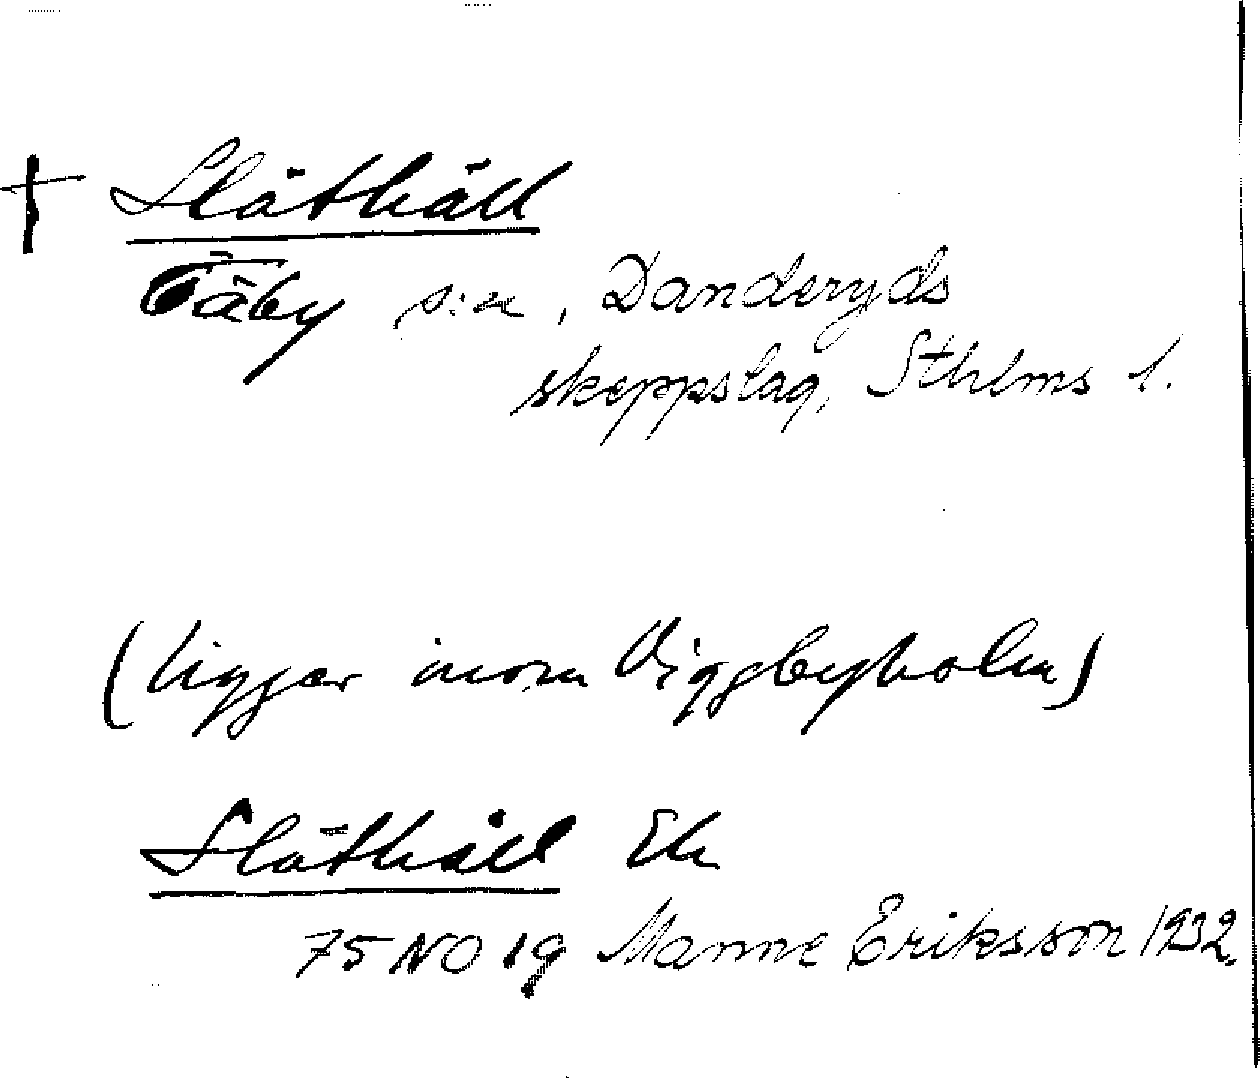 † Släthäll
Täby s:n, Danderyds
skeppslag, Sthlms l.
(Ligger inom Viggbyholm)
Släthäll Ek
75 NO 19 Manne Eriksson 1932.